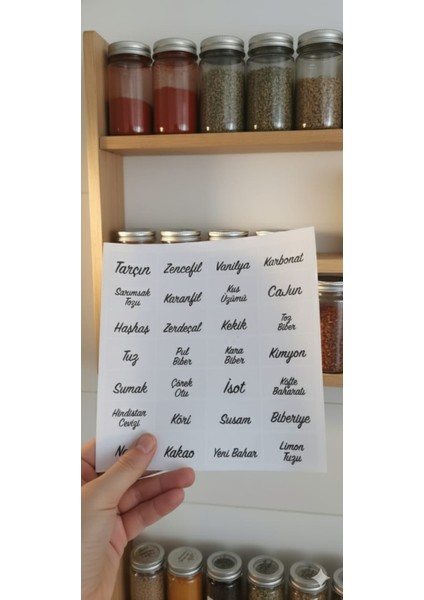 Tarçın Zencefil Vanilya Karbonat
Sarımsak Tozu Karanfil Kuş Üzümü CaJun
Haşhaş Zerdeçal Kekik Toz Biber
Tuz Pul Biber Kara Biber Kimyon
Sumak Çörek Otu İsot Köfte Baharatı
Hindistan Cevizi Köri Susam Biberiye
Kakao Yeni Bahar Limon Tuzu